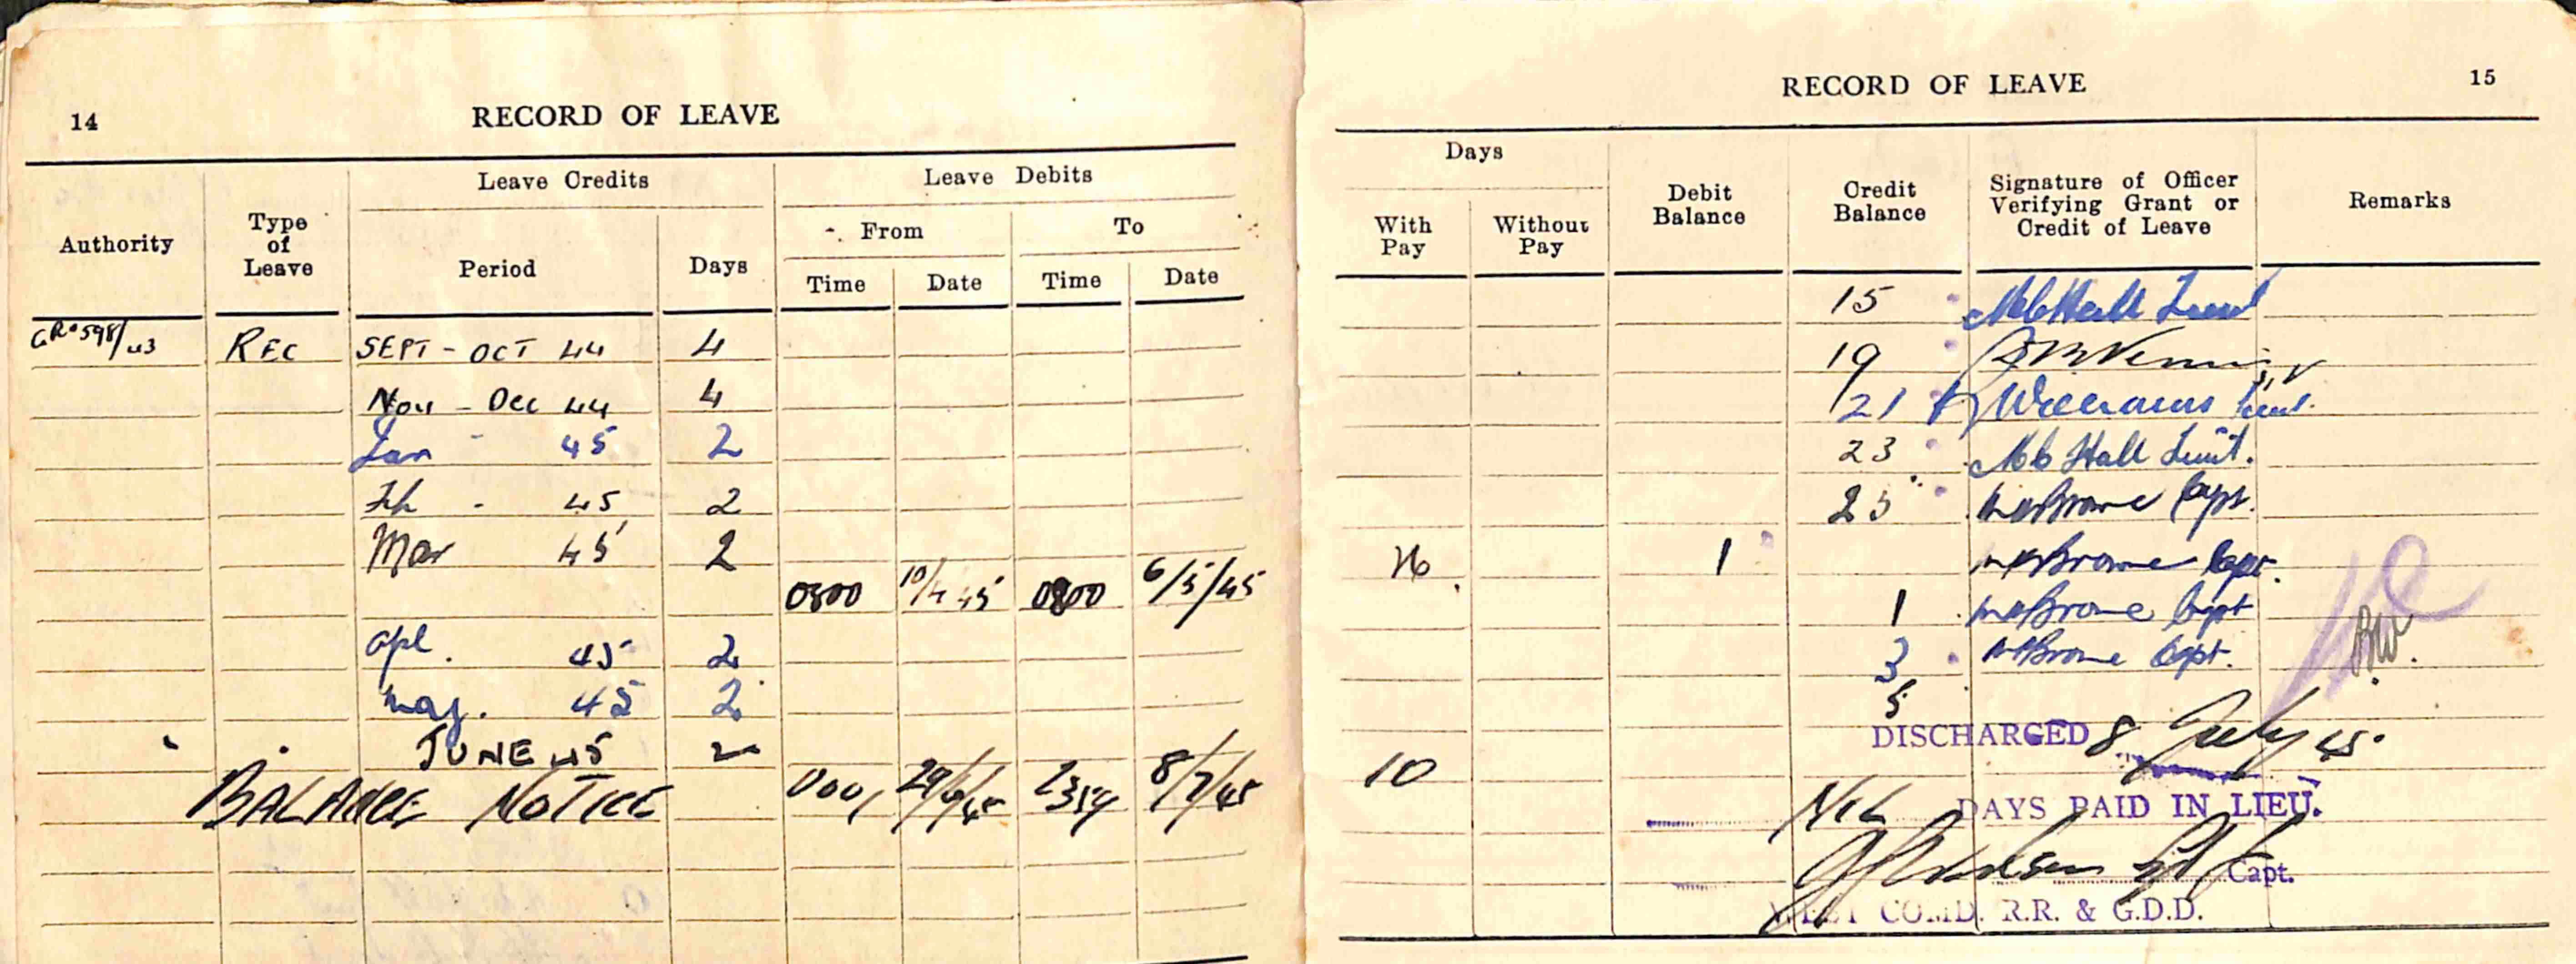 14
RECORD OF LEAVE
Authority
Type of Leave
Leave Credits
Period
Days
Leave Debits
From
To
Time
Date
Time
Date
GRO 598/43 REC SEPT - OCT 44 4
Nov - Dec 44 4
Jan - 45 2
Feb - 45 2
Mar 45 2
0800 10/4/45 0800 6/5/45
Apl. 45 2
May. 45 2
JUNE 45 2
BALANCE NOTICE 0001 29/6/45 2359 8/7/45
RECORD OF LEAVE
15
Days
With Pay
Without Pay
Debit Balance
Credit Balance
Signature of Officer Verifying Grant or Credit of Leave
Remarks
15 Hall Lieut
19
21 Williams Lieut.
23 Hall Lieut.
25 Browne Capt.
26 1 Browne Capt.
1 Browne Capt
3 Browne Capt.
5
DISCHARGED 8 July 45.
10
NIL DAYS PAID IN LIEU.
Capt.
WEST COMD. R.R. & G.D.D.